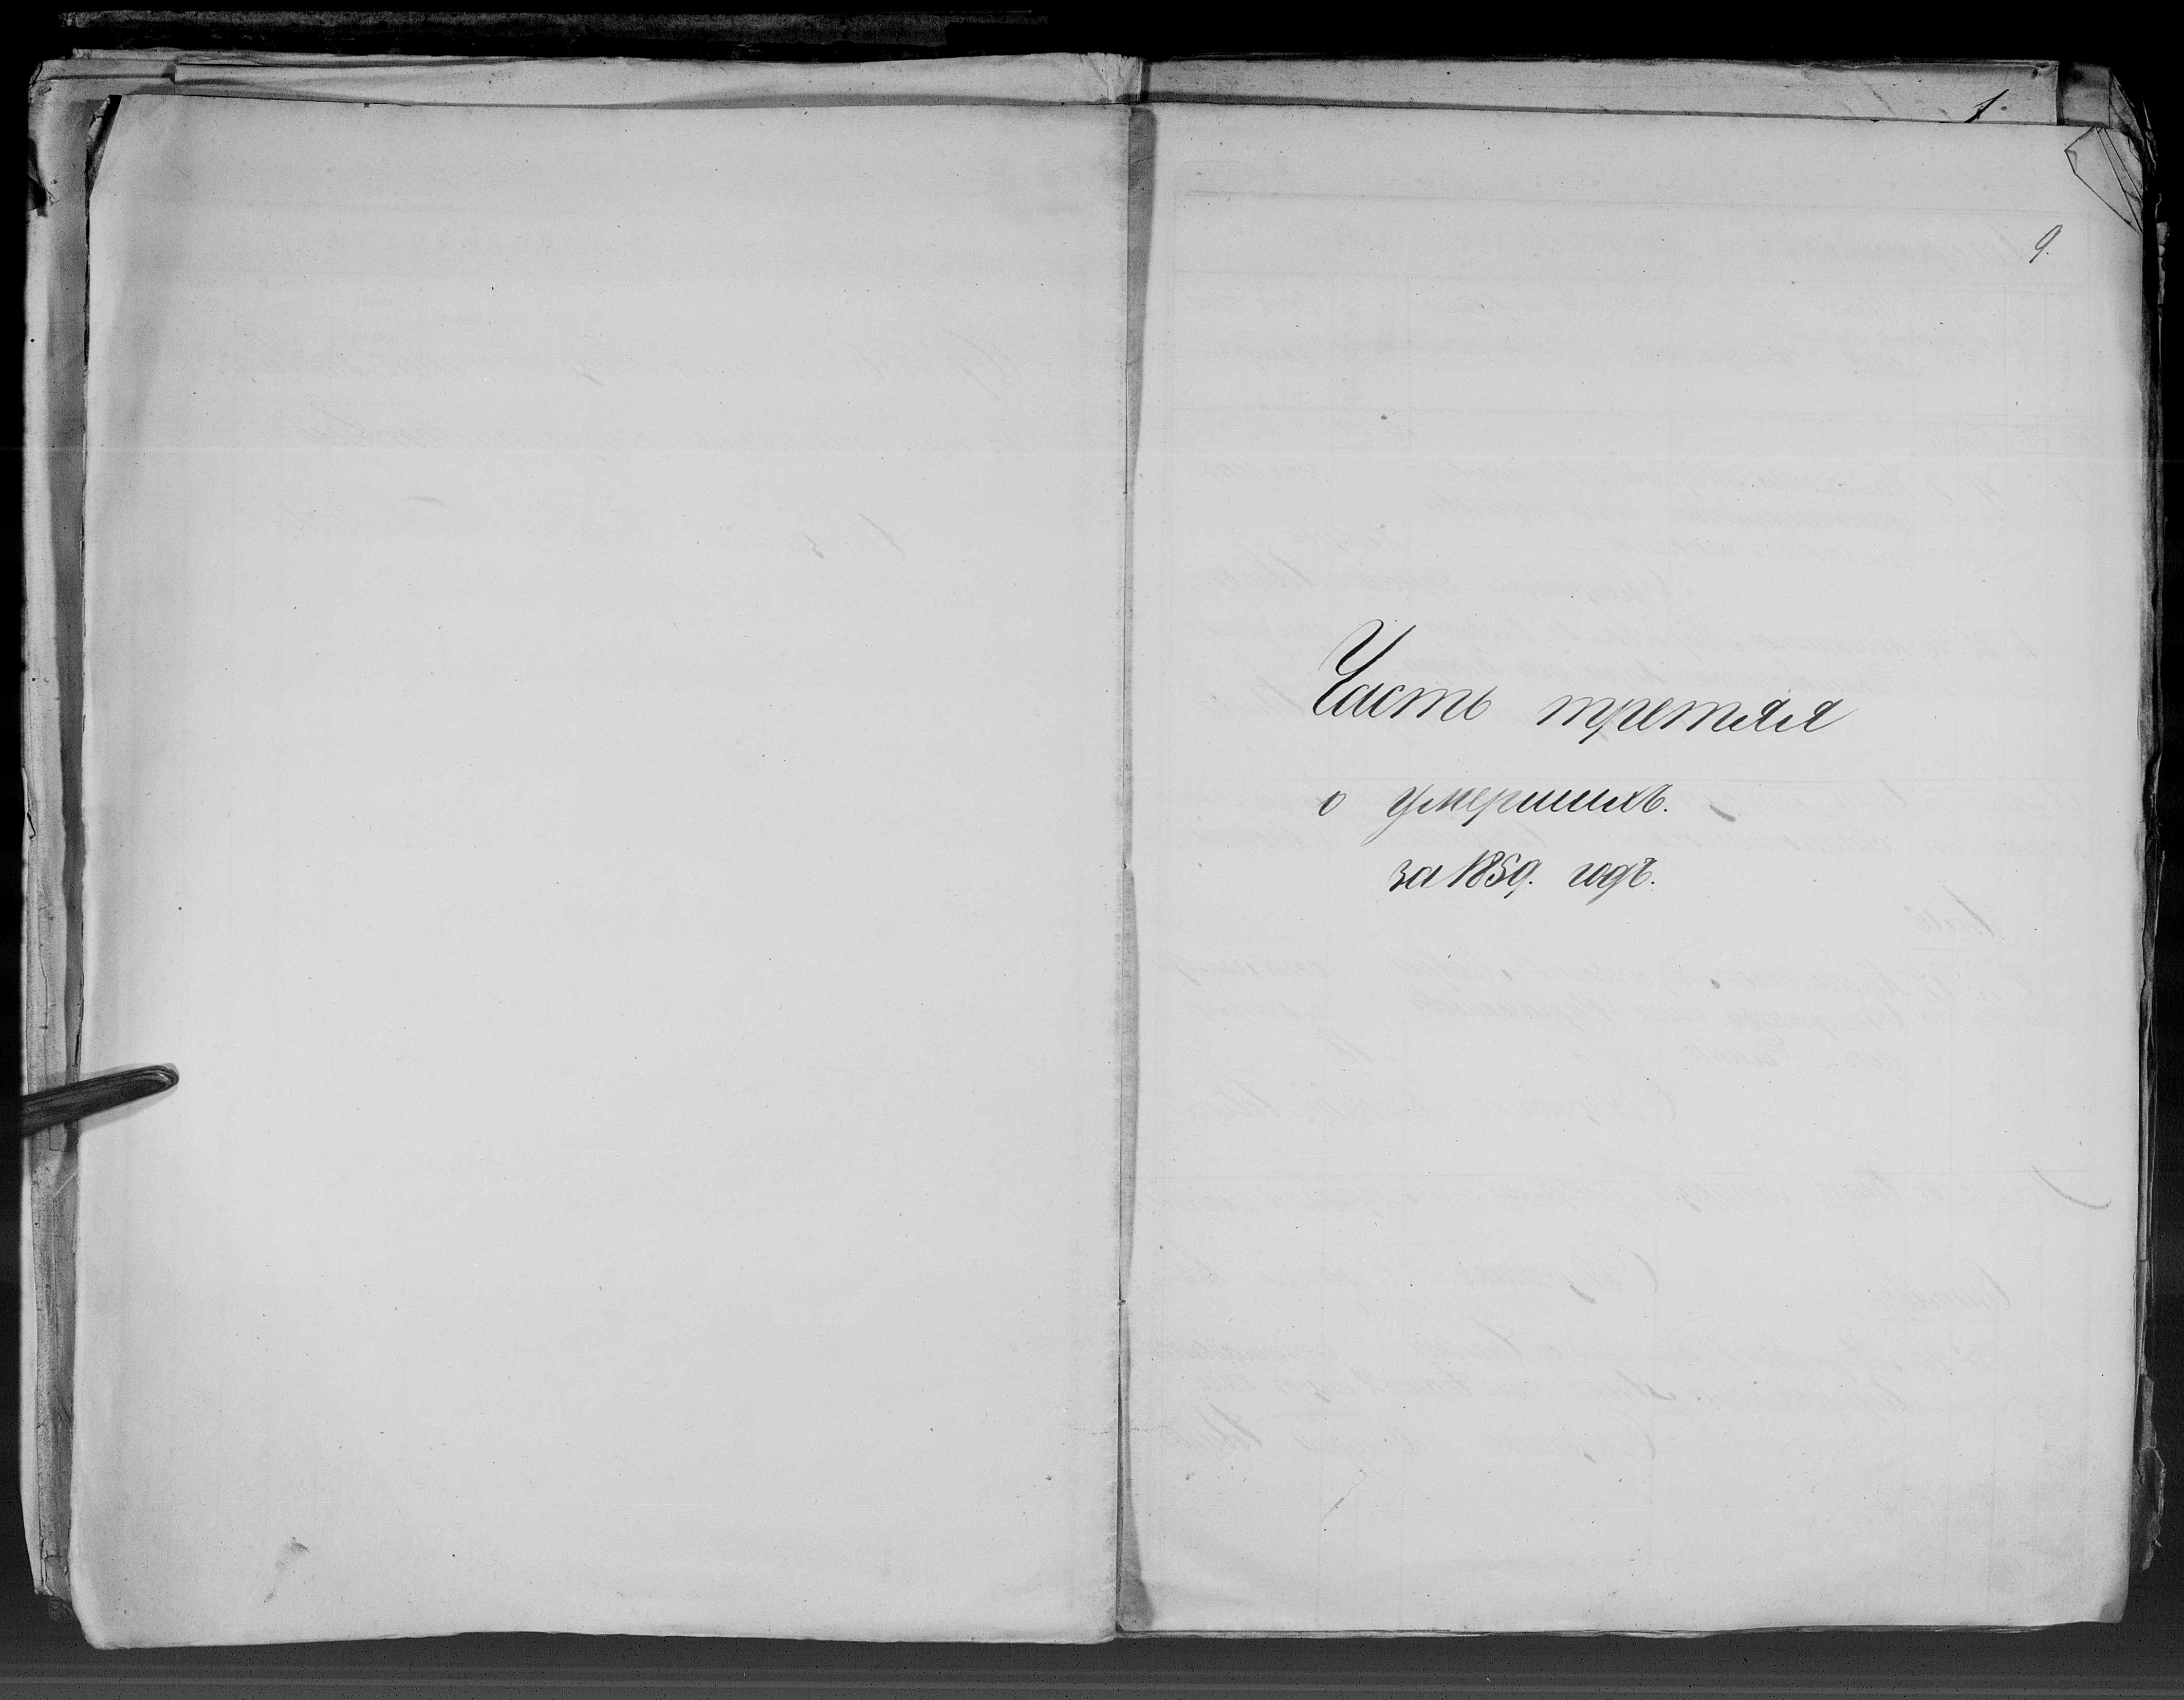 9.
Часть третяя
о умершихъ.
за 1859. годъ.